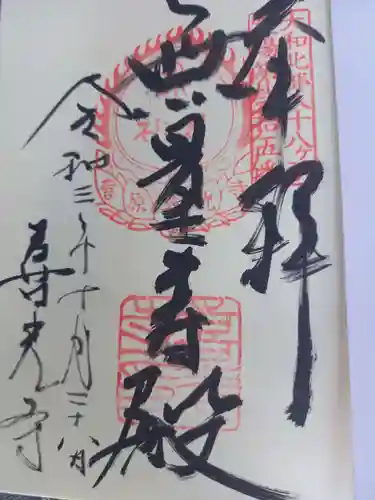 奉拝
大和北部八十八ヶ所
無量寿殿
令和三年十月二十八日
喜光寺